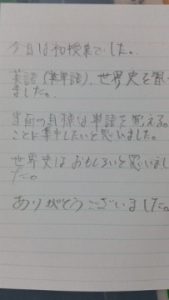 今日は初授業でした。
英語(英単語)、世界史を習い
ました。
当面の目標は単語を覚える。
ことに集中したいと思いました。
世界史はおもしろいと思いまし
た。
ありがとうございました。